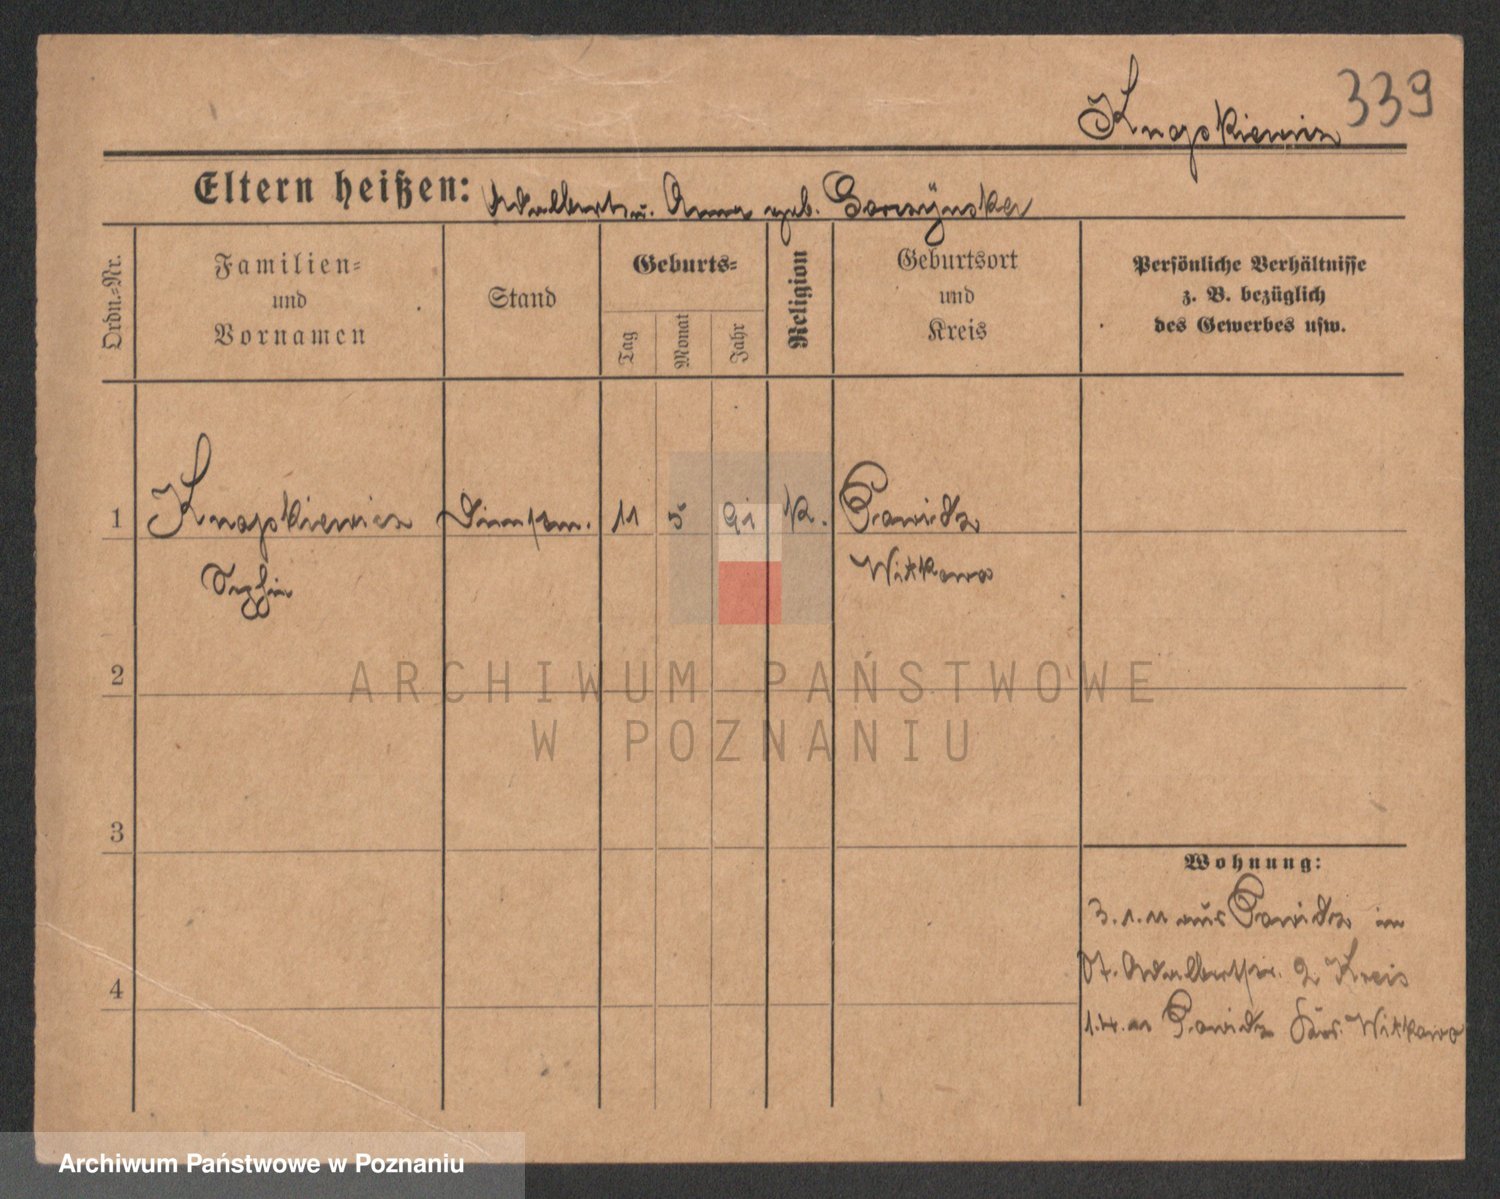 Knapkiewicz 339
Eltern heißen: Adalbert u. Anna geb.
Ordn.-Nr.
Familien-
und
Vornamen
Stand
Geburts-
Tag
Monat
Jahr
Religion
Geburtsort
und
Kreis
Persönliche Verhältnisse
z. B. bezüglich
des Gewerbes usw.
1 Knapkiewicz Dienstm. 11 5 91 K. Powidz
Sophie Witkowo
2
3
4
Wohnung:
3.1.11 aus Powidz in
St. Adalbertstr. 2 Kreis
Powidz Witkowo
ARCHIWUM PAŃSTWOWE
W POZNANIU
Archiwum Państwowe w Poznaniu